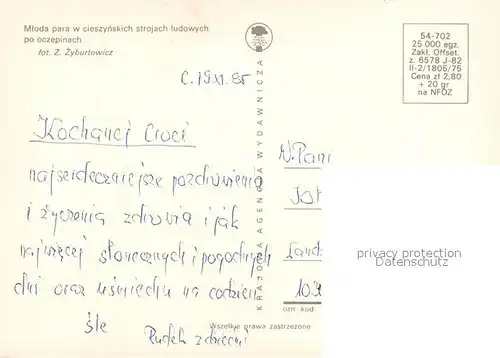 Młoda para w cieszyńskich strojach ludowych
po oczepinach
fot. Z. Żyburtowicz
54-702
25 000 egz.
Zakł. Offset.
z. 6578 J-82
II-2/1805/75
Cena zł 2,80
+ 20 gr
na NFOZ
KRAJOWA AGENCJA WYDAWNICZA
C. 19 XI. 85
Kochanej Cioci
najserdeczniejsze pozdrowienia
i życzenia zdrowia i jak
najwięcej słonecznych i pogodnych
dni oraz uśmiechu na codzień
śle
Rudek z dziećmi
W. Pani
privacy protection
Datenschutz
ozn. kod
Wszelkie prawa zastrzeżone